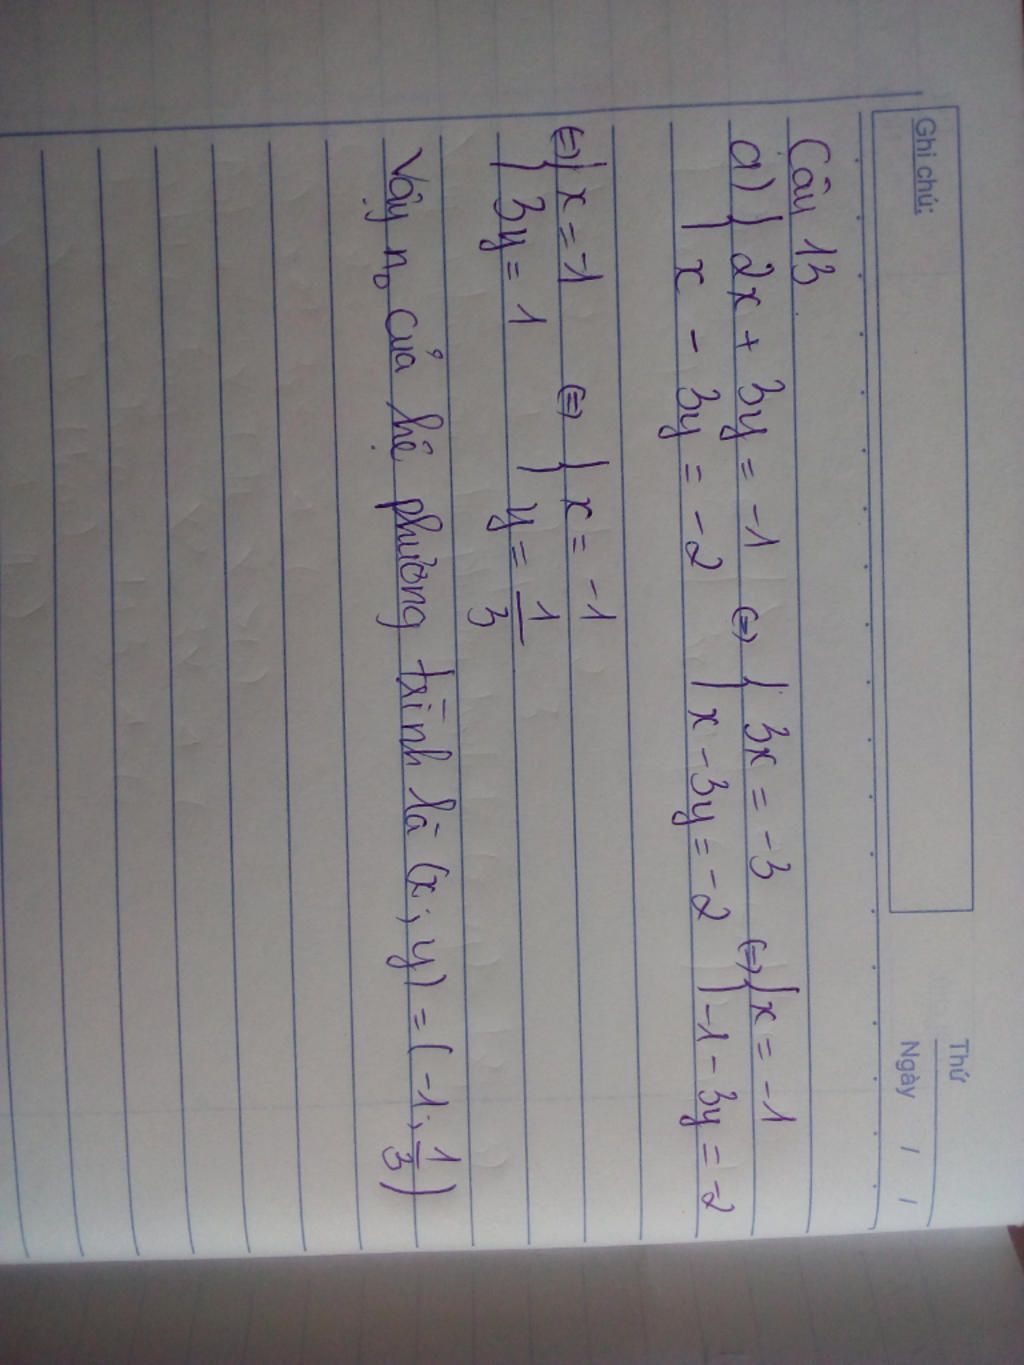 Ghi chú:
Thứ
Ngày / /
Câu 13
a) { 2x + 3y = -1 (=) { 3x = -3 (=) { x = -1
x - 3y = -2 x - 3y = -2 -1 - 3y = -2
(=) { x = -1 (=) { x = -1
3y = 1 y = 1/3
Vậy no của hệ phương trình là (x; y) = (-1; 1/3)